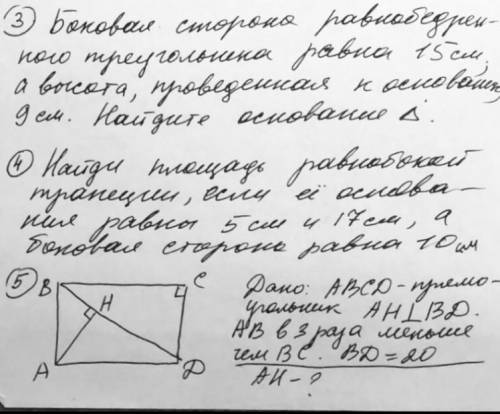 ③ Боковая сторона равнобедрен-
ного треугольника равна 15 см,
а высота, проведенная к основанию,
9 см. Найдите основание Δ.
④ Найди площадь равнобокой
трапеции, если её основа-
ния равны 5 см и 17 см, а
боковая сторона равна 10 см
⑤ B C H A D
Дано: ABCD - прямо-
угольник AH⊥BD.
AB в 3 раза меньше
чем BC. BD = 20
AH - ?